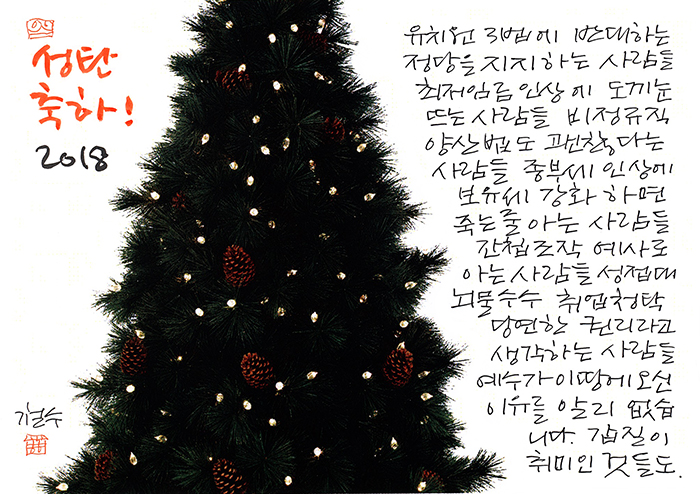 성탄
축하!
2018
유치원 3법에 반대하는
정당을 지지하는 사람들
최저임금 인상에 도끼눈
뜨는 사람들 비정규직
양산법도 괜찮다는
사람들 종부세 인상에
보유세 강화하면
죽는줄 아는 사람들
간첩조작 예사로
아는 사람들 성접대
뇌물수수 취업청탁
당연한 권리라고
생각하는 사람들
예수가 이땅에 오신
이유를 알리 없습
니다. 갑질이
취미인 것들도.